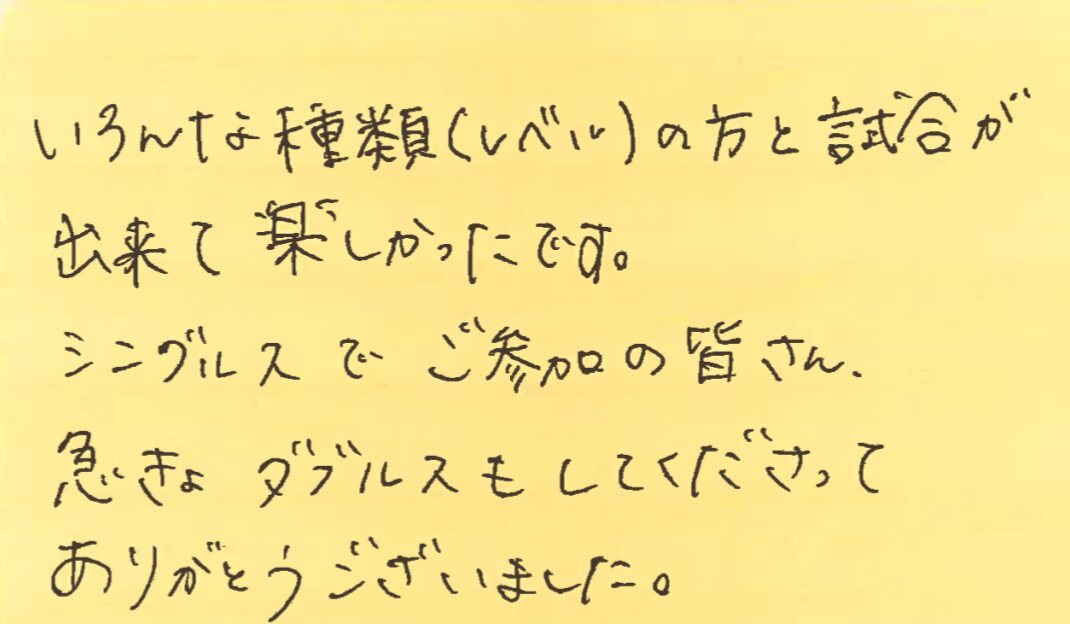 いろんな種類(レベル)の方と試合が
出来て楽しかったです。
シングルスでご参加の皆さん、
急きょダブルスもしてくださって
ありがとうございました。